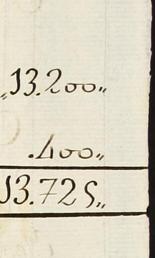 „13.200„
.400„
13.725„